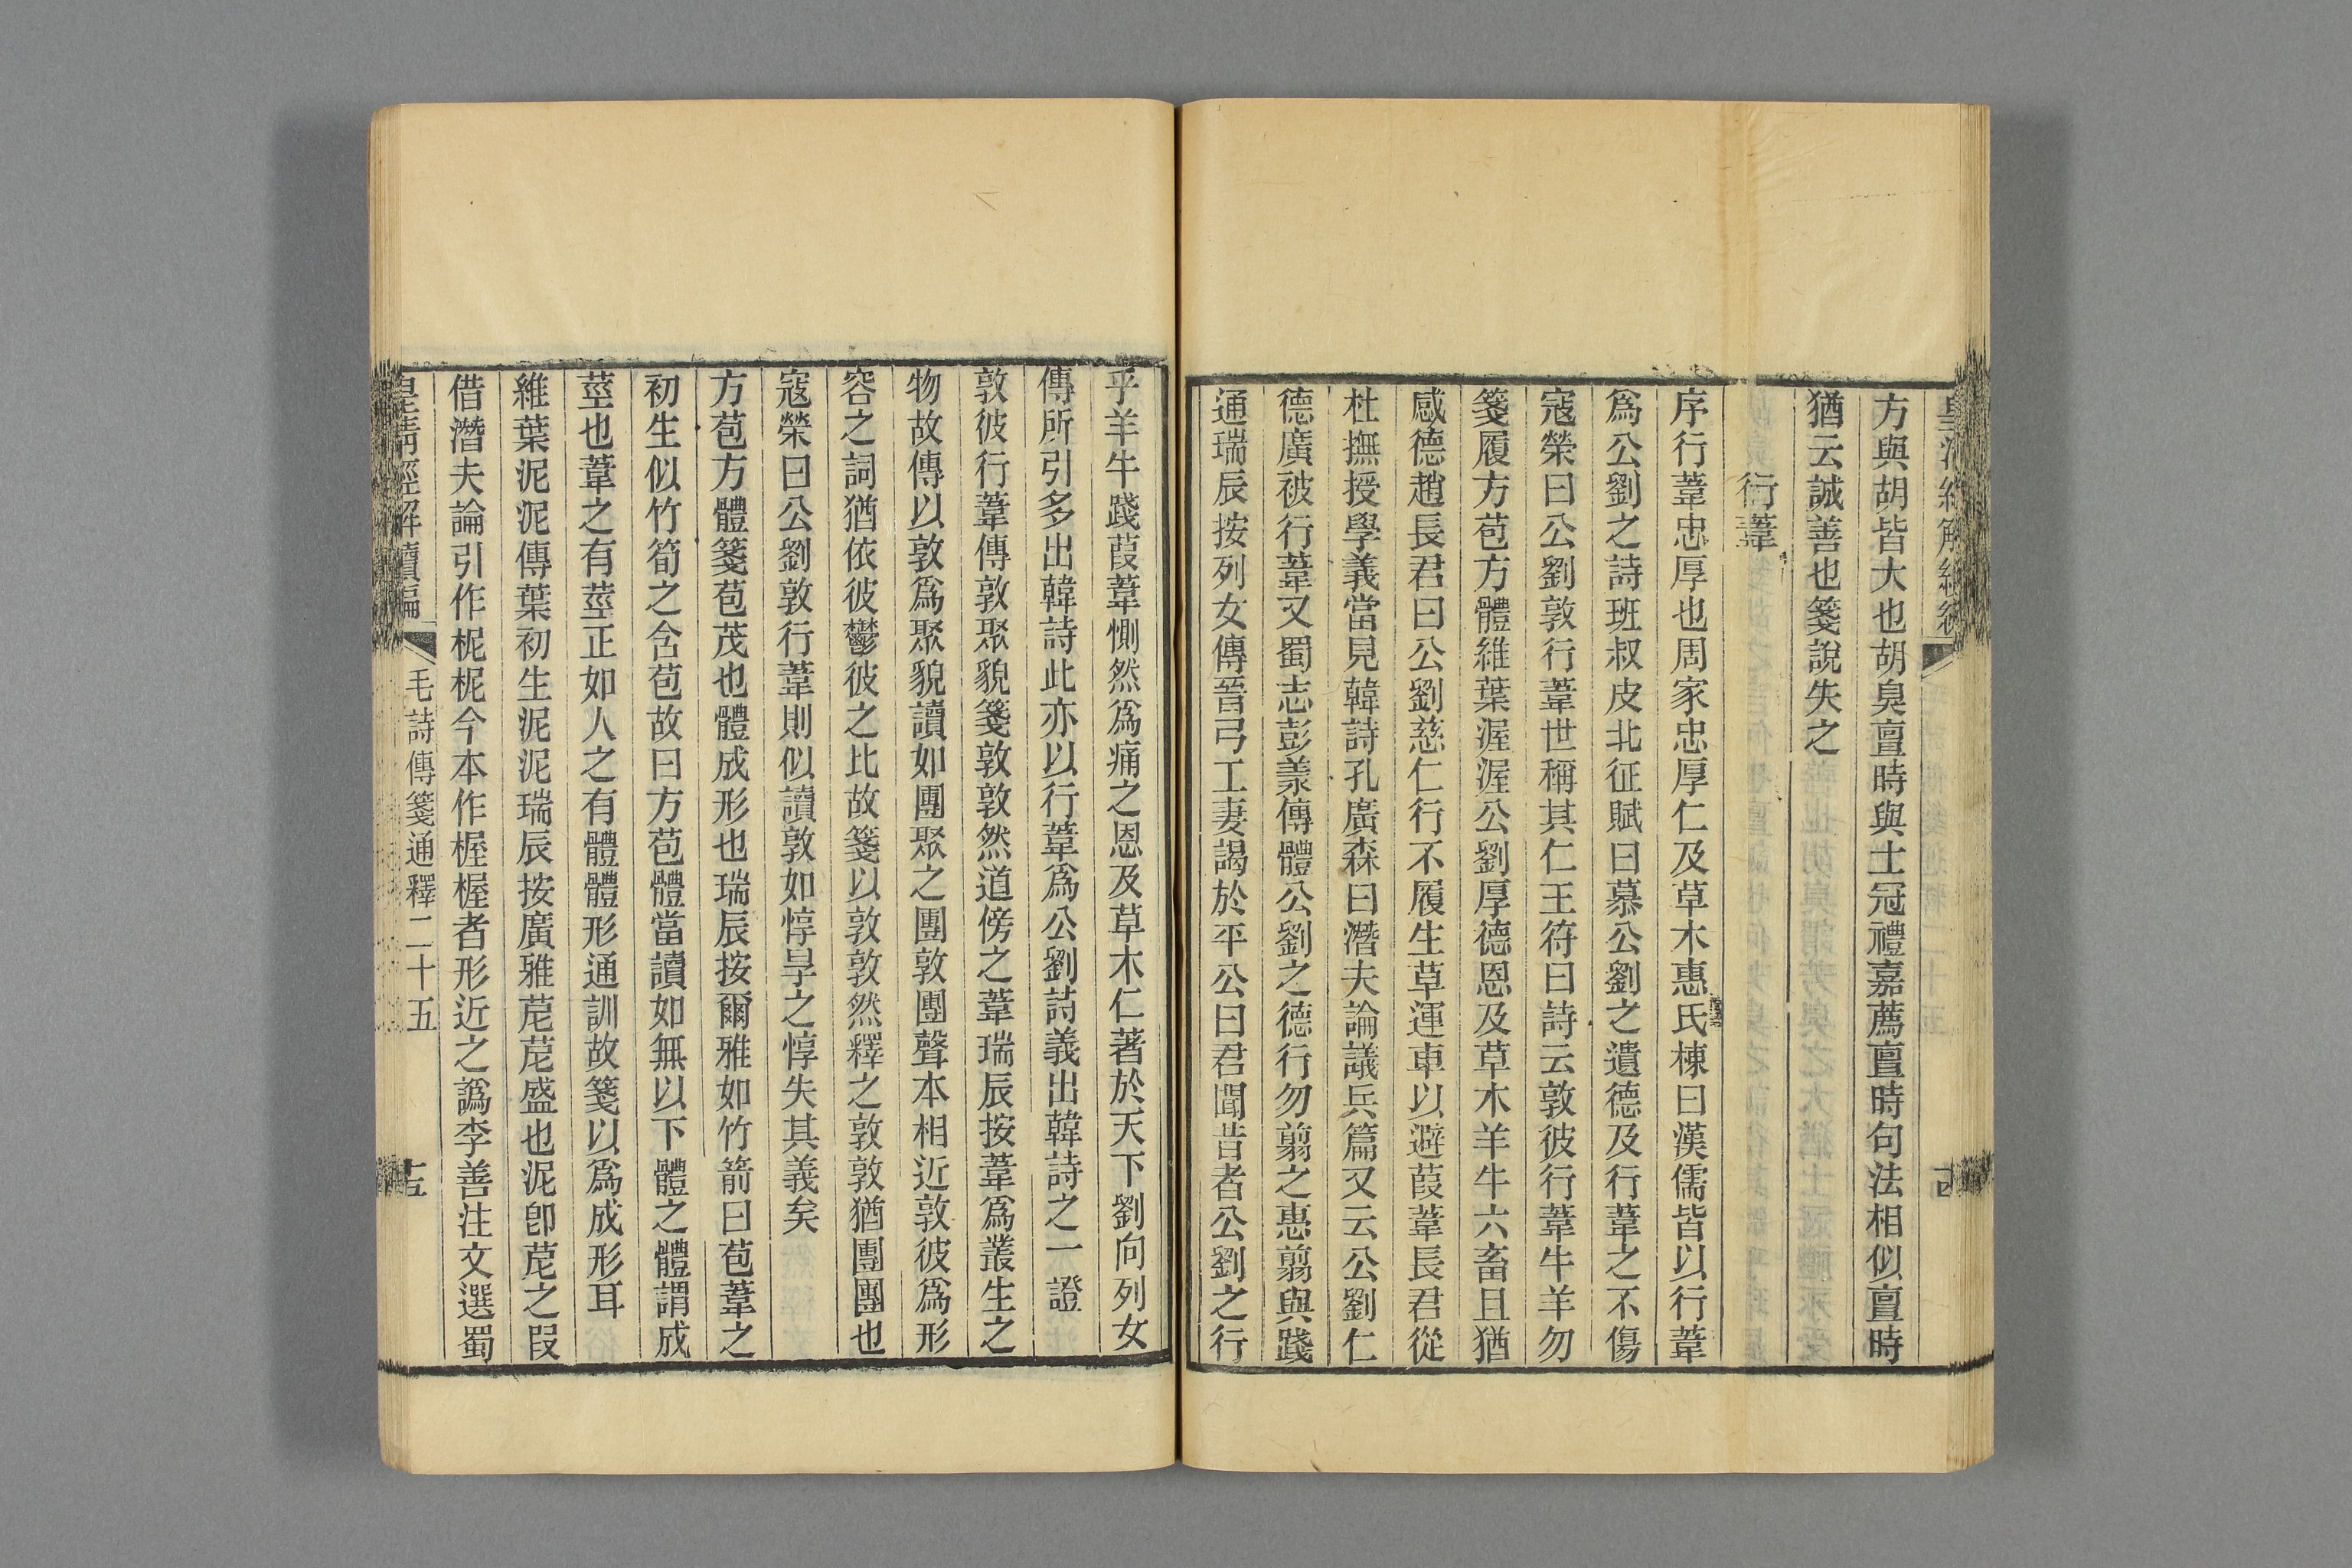 方與胡皆大也胡臭亶時與士冠禮嘉薦亶時句法相似亶時
猶云誠善也箋說失之
行葦
序行葦忠厚也周家忠厚仁及草木惠氏棟曰漢儒皆以行葦
爲公劉之詩班叔皮北征賦曰慕公劉之遺德及行葦之不傷
寇榮曰公劉敦行葦世稱其仁王符曰詩云敦彼行葦牛羊勿
箋履方苞方體維葉渥渥公劉厚德恩及草木羊牛六畜且猶
感德趙長君曰公劉慈仁行不履生草運車以避葭葦長君從
杜撫授學義當見韓詩孔廣森曰潛夫論議兵篇又云公劉仁
德廣被行葦又蜀志彭羕傳體公劉之德行勿翦之惠翦與踐
通瑞辰按列女傳晉弓工妻謁於平公曰君聞昔者公劉之行
乎羊牛踐葭葦惻然爲痛之恩及草木仁著於天下劉向列女
傳所引多出韓詩此亦以行葦爲公劉詩義出韓詩之一證
敦彼行葦傳敦聚貌箋敦敦然道傍之葦瑞辰按葦爲叢生之
物故傳以敦爲聚貌讀如團聚之團敦團聲本相近敦彼爲形
容之詞猶依彼鬱彼之比故箋以敦敦然釋之敦敦猶團團也
寇榮曰公劉敦行葦則似讀敦如惇㫗之惇失其義矣
方苞方體箋苞茂也體成形也瑞辰按爾雅如竹箭曰苞葦之
初生似竹筍之含苞故曰方苞體當讀如無以下體之體謂成
莖也葦之有莖正如人之有體體形通訓故箋以爲成形耳
維葉泥泥傳葉初生泥泥瑞辰按廣雅苨苨盛也泥卽苨之叚
借潛夫論引作柅柅今本作楃楃者形近之譌李善注文選蜀
皇淸經解續編
毛詩傳箋通釋二十五